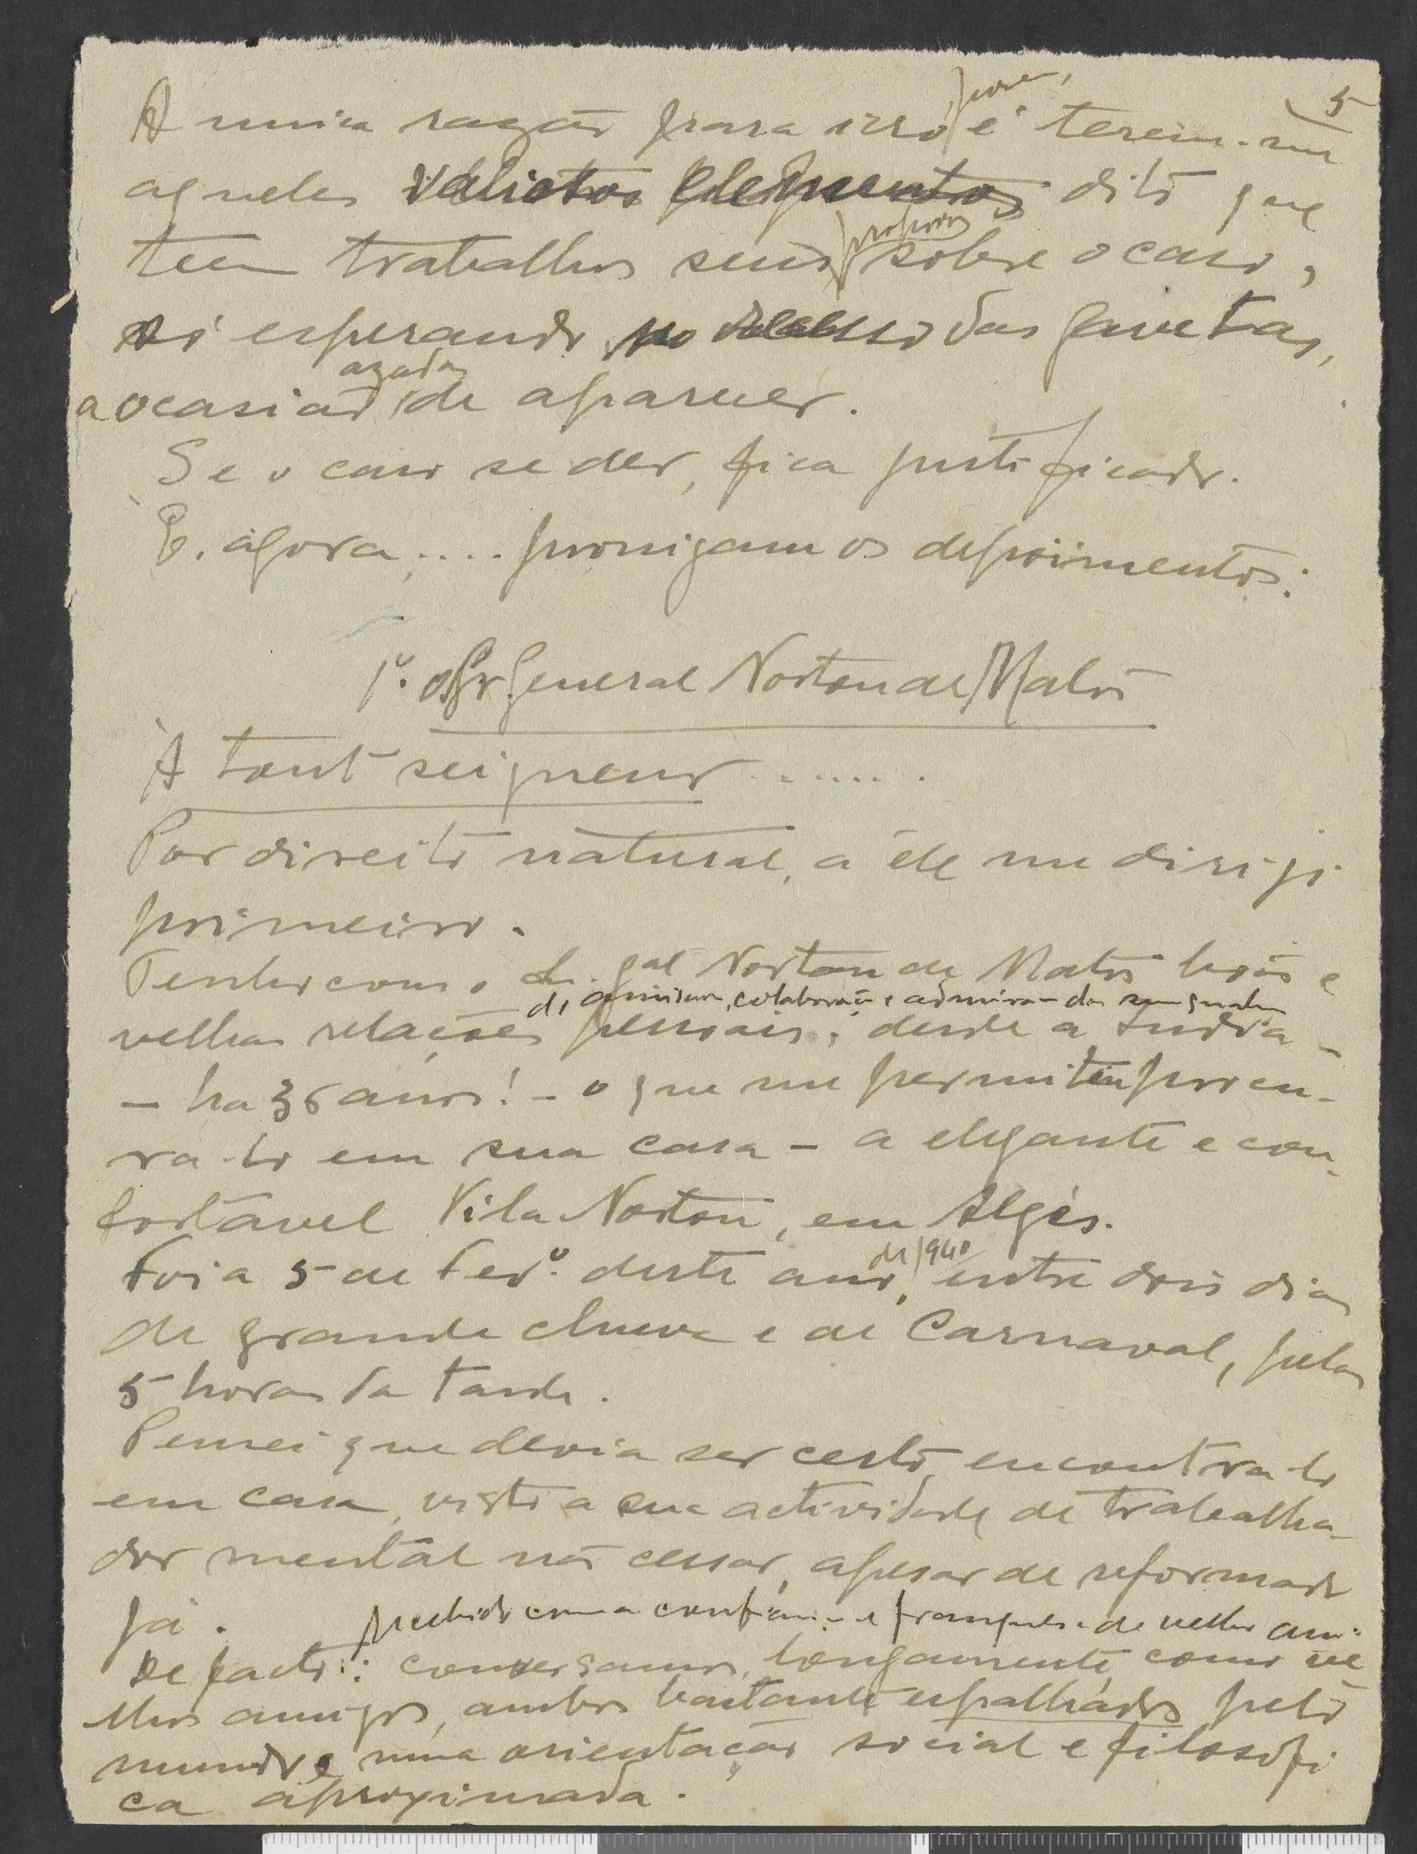 5
A unica razão para isso é terem-me
aqueles valiosos elementos dito que
teem trabalhos seus próprios sobre o caso,
só esperando, no recesso das gavetas,
a ocasião azada de aparecer.
Se o caso se der, fica justificado.
E, agora,.... prosigam os depoimentos:
1º. o Sr. General Norton de Matos
À tout seigneur.......
Por direito natural, a êle me dirigi
primeiro.
Tenho com o Sr. gal Norton de Matos boas e
velhas relações pessoais, desde a India -
de amisade, colaboração e admiração
- ha 36 anos! - o que me permitiu procu-
ra-lo em sua casa - a elegante e con-
fortavel Vila Norton, em Algés.
Foi a 5 de Fevº. deste ano, de 1940 entre dois dias
de grande chuva e de Carnaval, pelas
5 horas da tarde.
Pensei que devia ser certo encontra-lo
em casa, visto a sua actividade de trabalha-
dor mental não cessar, apesar de reformado
já.
recebido com a confiança e franqueza de velho amigo
De facto: conversamos, longamente, como ve
lhos amigos, ambos bastante espalhados pelo
mundo e numa orientação social e filosofi
ca aproximada.